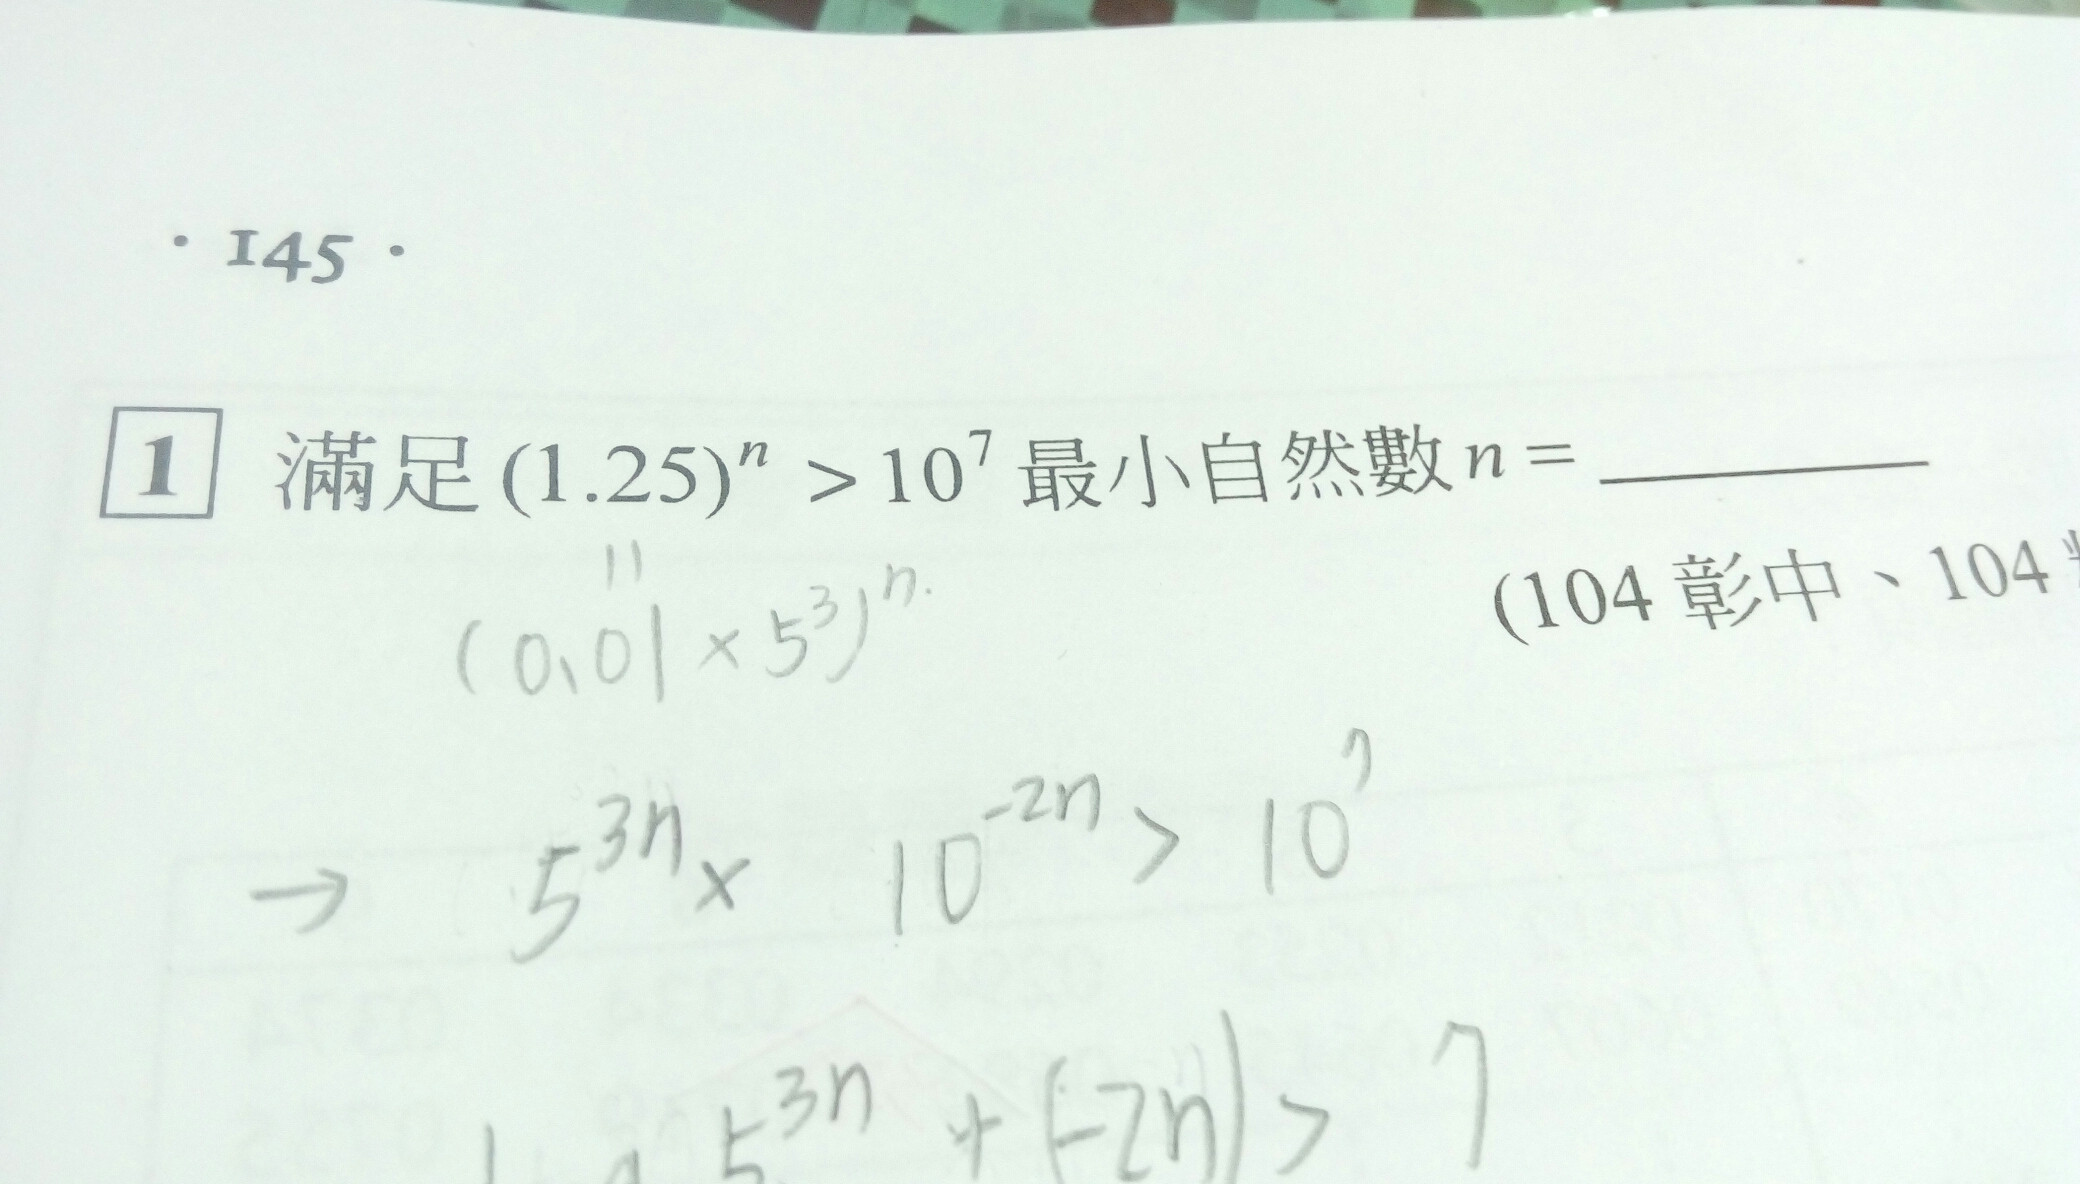 · 145 ·
1 滿足 (1.25)ⁿ > 10⁷ 最小自然數 n = ________
(104 彰中、104
(0.01 × 5³)ⁿ
→ 5³ⁿ × 10⁻²ⁿ > 10⁷
5³ⁿ + (-2n) > 7